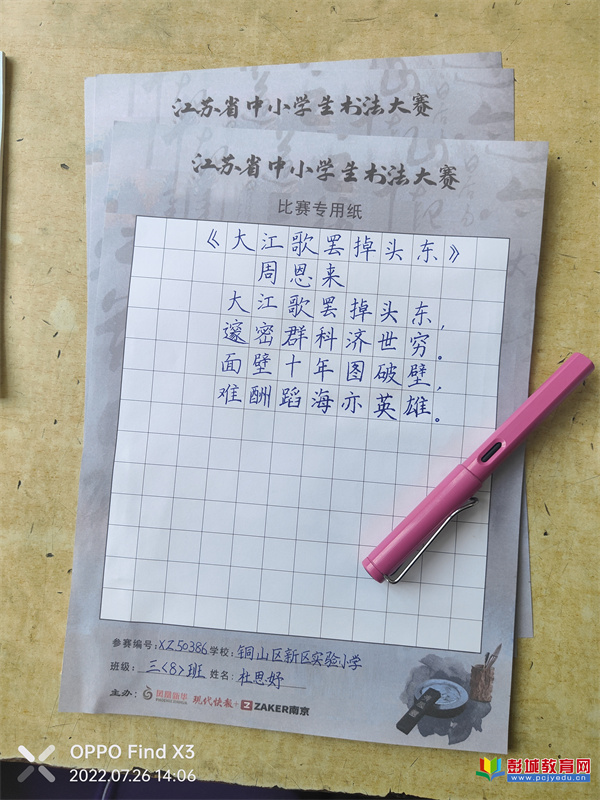 江苏省中小学生书法大赛
江苏省中小学生书法大赛
比赛专用纸
《大江歌罢掉头东》
周恩来
大江歌罢掉头东,
邃密群科济世穷。
面壁十年图破壁,
难酬蹈海亦英雄。
参赛编号:XZ50386学校:铜山区新区实验小学
班级:三<8>班 姓名:杜思妤
主办: 凤凰新华 现代快报+ ZAKER南京
OPPO Find X3
2022.07.26 14:06
彭城教育网
www.pcjyedu.cn